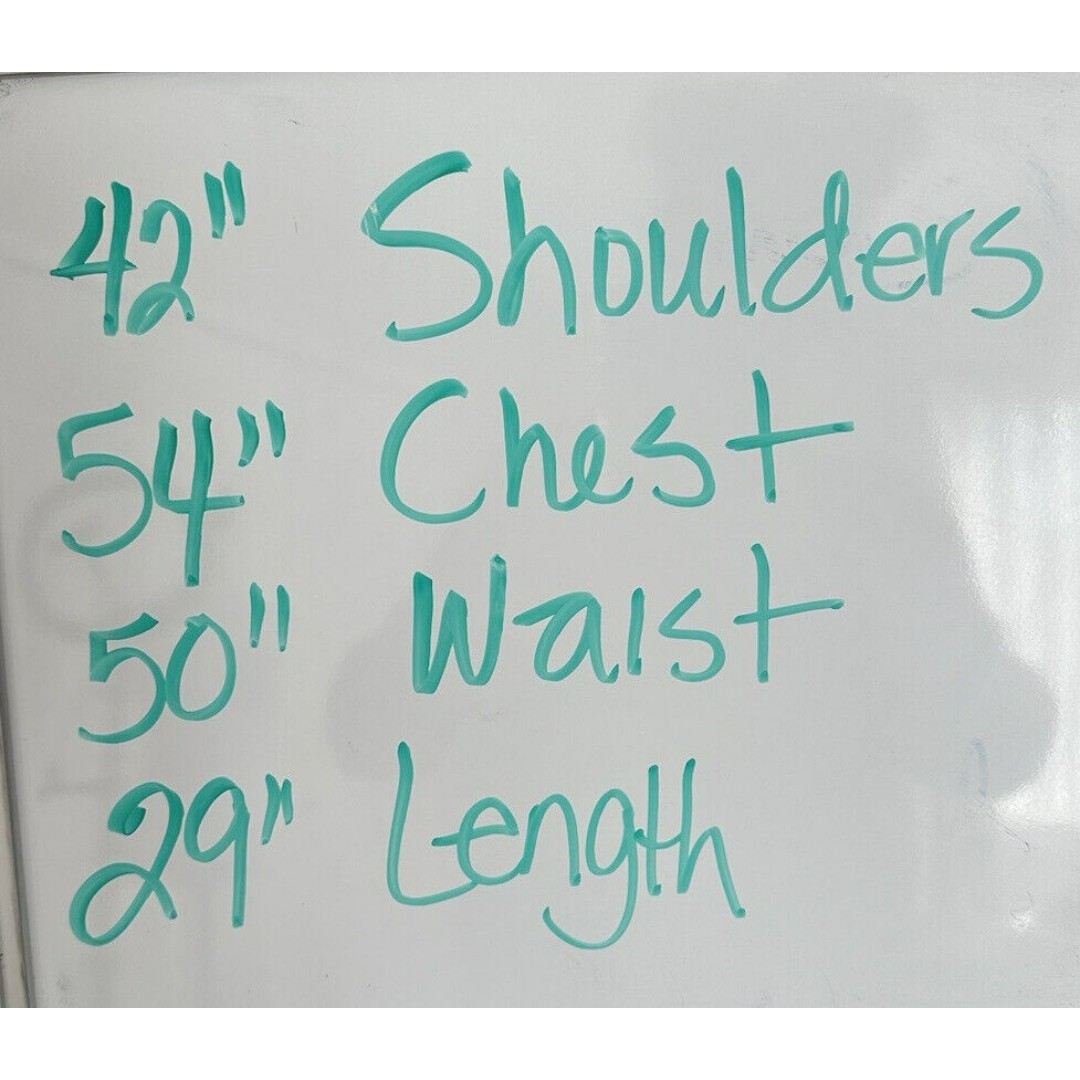 42" Shoulders
54" Chest
50" Waist
29" Length